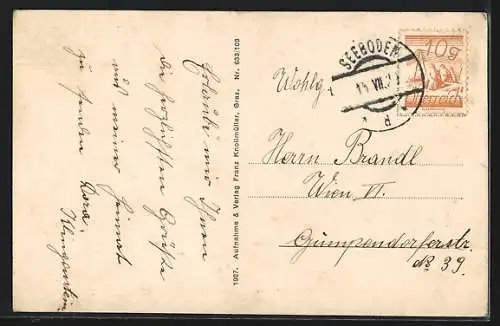 Erlaube mir Ihnen
die herzlichsten Grüße
aus meiner Heimat
zu senden Dora
1927. Aufnahme & Verlag Franz Knollmüller, Graz. Nr. 633/103
SEEBODEN
VIII
10g
Österreich
Wohlg.
Herrn Brandl
Wien VI.
Gumpendorferstr.
№ 39.